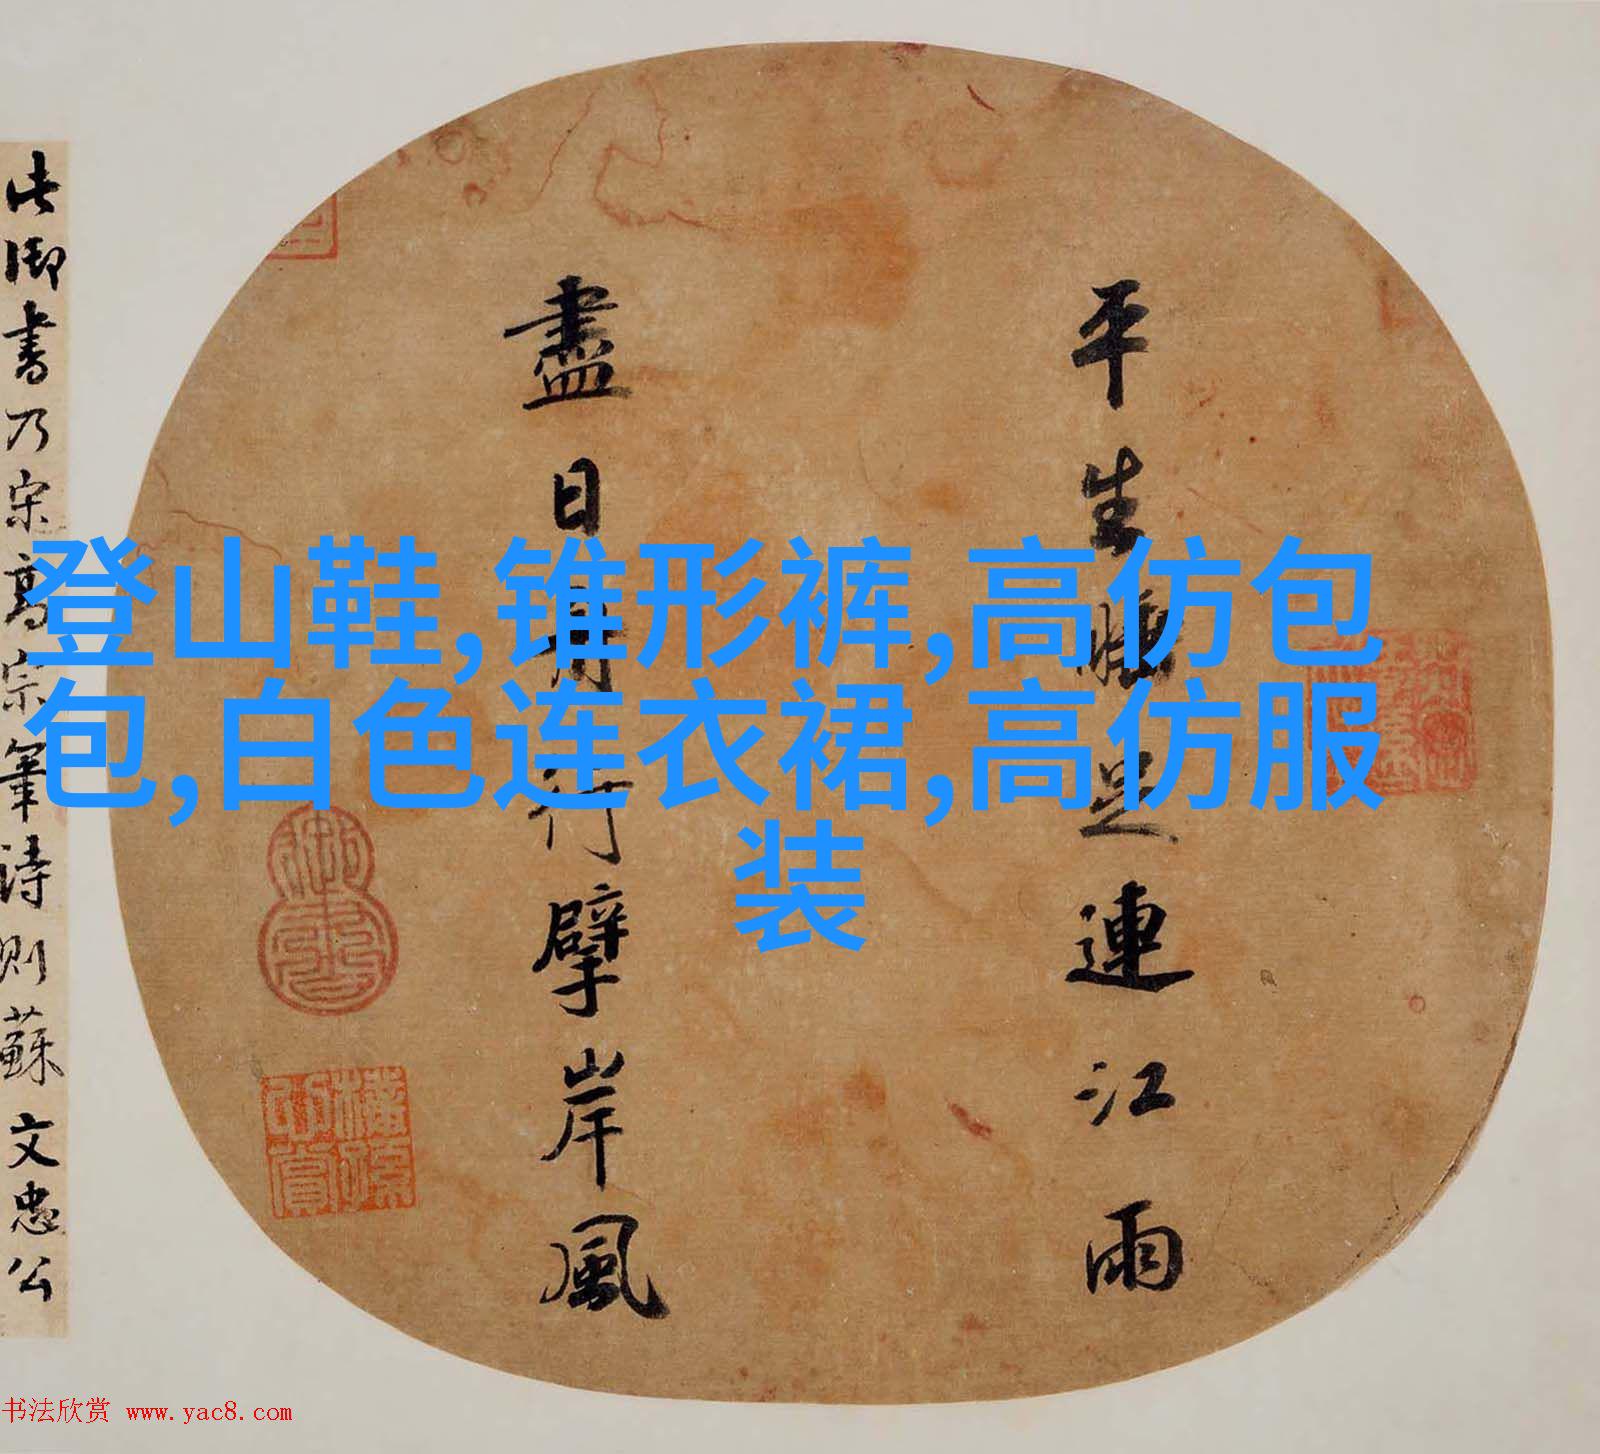 登山鞋,锥形裤,高仿包
包,白色连衣裙,高仿服
装
平生睡足連江雨
盡日舟行擘岸風
此御書乃宋高宗筆詩則蘇文忠公
书法欣赏 www.yac8.com